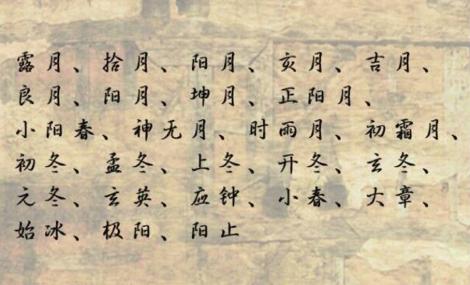 露月、拾月、阳月、亥月、吉月、
良月、阳月、坤月、正阳月、
小阳春、神无月、时雨月、初霜月、
初冬、孟冬、上冬、开冬、玄冬、
元冬、玄英、应钟、小春、大章、
始冰、极阳、阳止